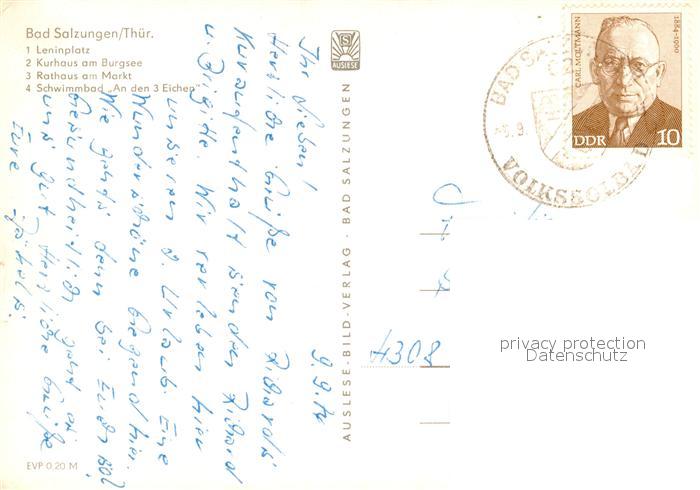 Bad Salzungen/Thür.
1 Leninplatz
2 Kurhaus am Burgsee
3 Rathaus am Markt
4 Schwimmbad „An den 3 Eichen"
AUSLESE
9.9.74
Ihr Lieben!
Herzliche Grüße von
Kuraufenthalt senden Richard
u. Brigitte. Wir verleben hier
unseren 2. Urlaub. Eine
Wunderschöne Gegend hier.
Wie gehts denn bei Euch so?
Gesundheitlich geht es
uns gut. Herzliche Grüße
Eure
EVP 0,20 M
AUSLESE-BILD-VERLAG · BAD SALZUNGEN
BAD SALZ
VOLKSSOLBAD
CARL MOLTMANN
1884-1960
DDR 10
4308
privacy protection
Datenschutz